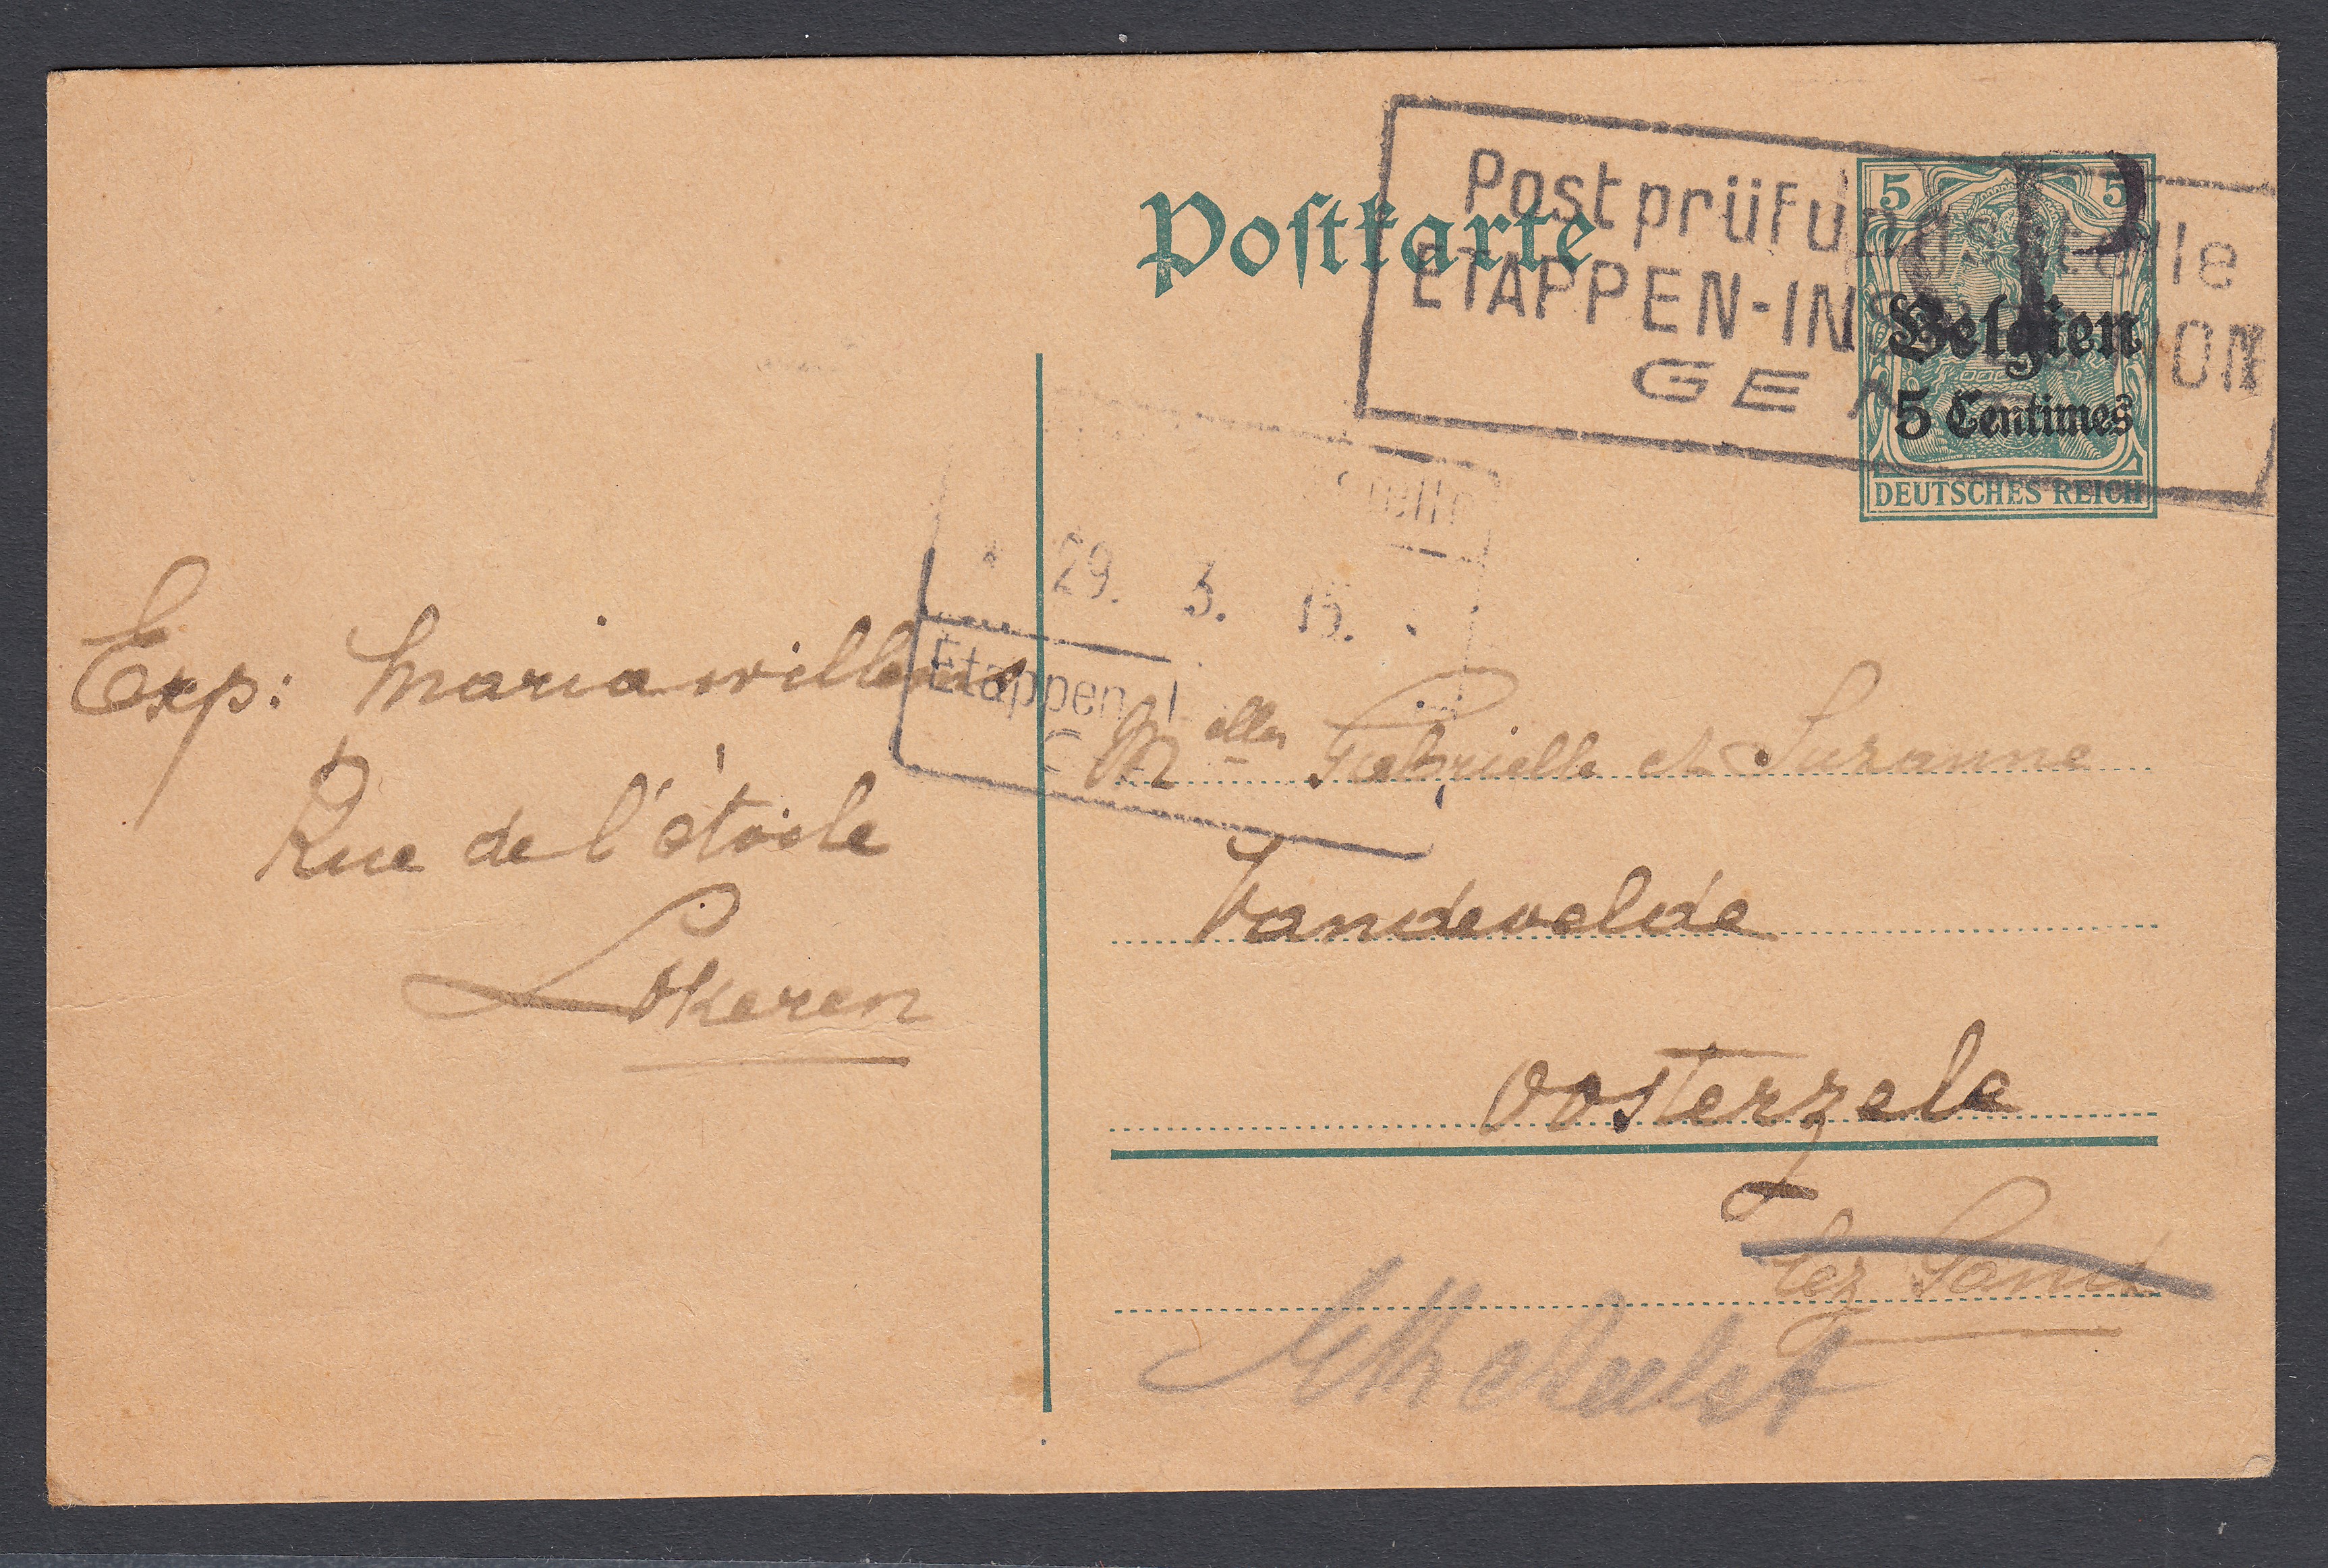 Postkarte
Postprüfungsstelle
ETAPPEN-INSPEKTION
GENT
5 5
Belgien
5 Centimes
DEUTSCHES REICH
P
29. 3. 15.
Etappen-I
Exp: Maria Willems
Rue de l'étoile
Lokeren
Melles Gabrielle et Suzanne
Vandevelde
Oosterzele
lez Gand